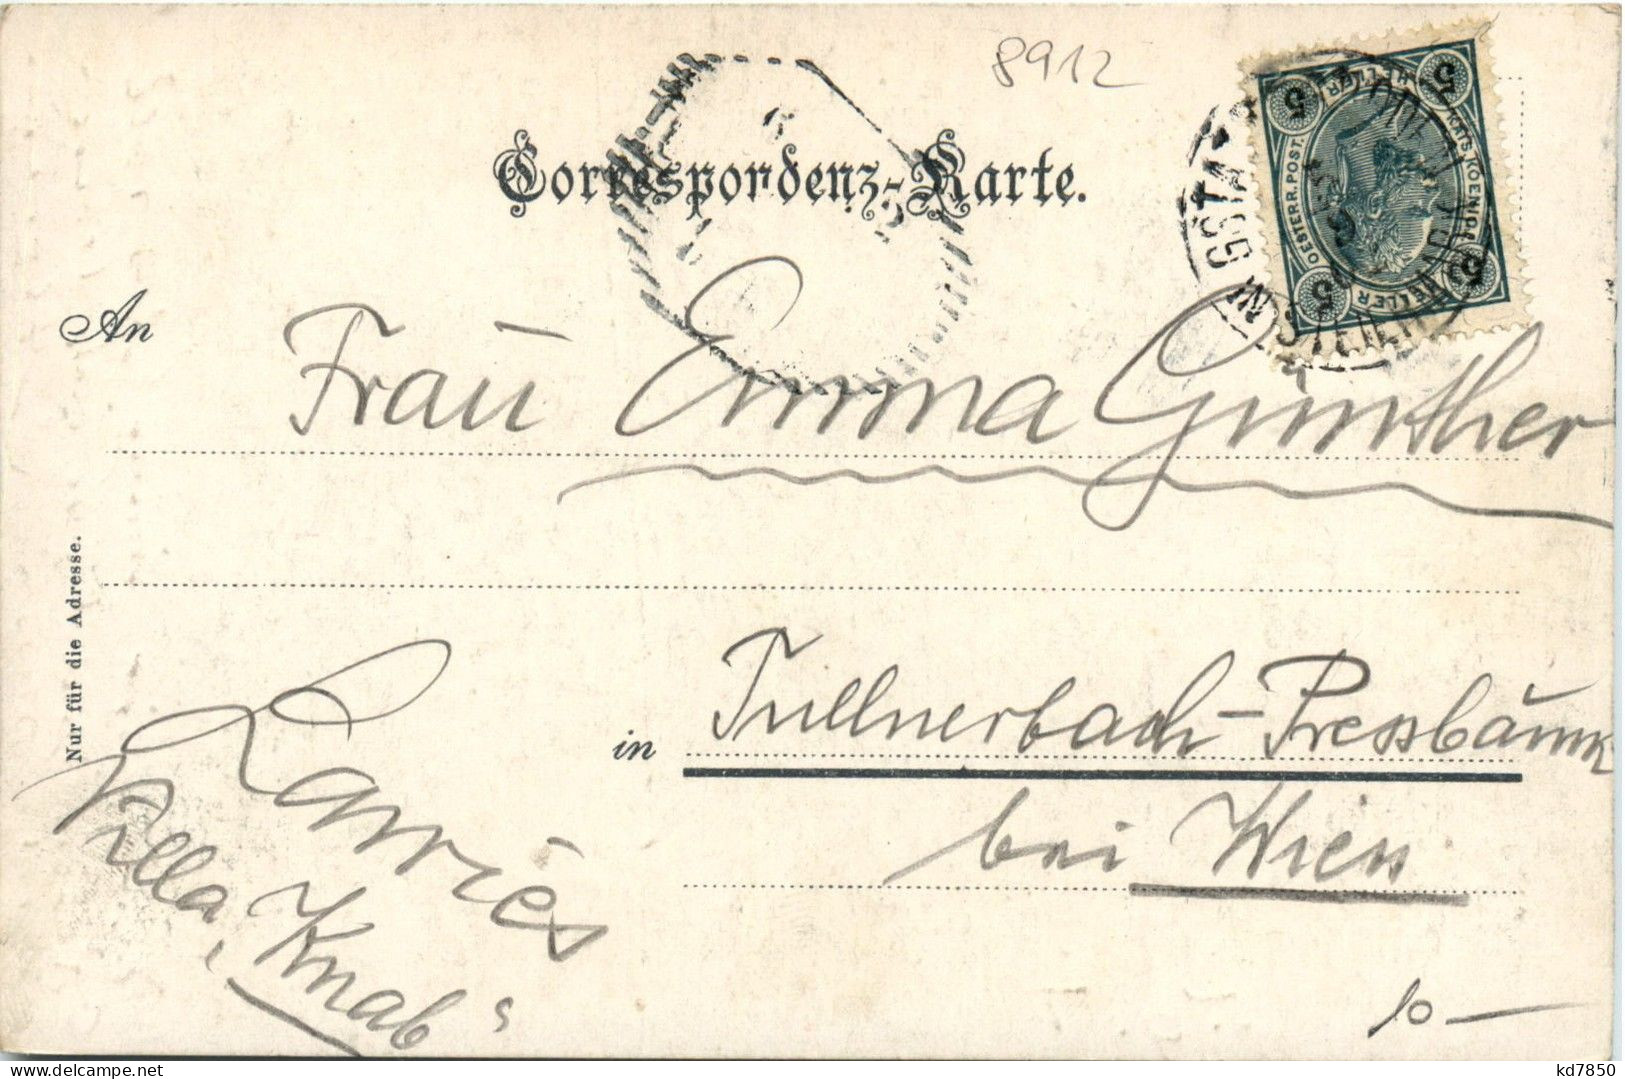 8912
Correspondenz-Karte.
5 HELLER 5
OESTERR. POST.
KAIS. KOENIGL.
5 HELLER 5
An
Frau Emma Günther
Nur für die Adresse.
in Tullnerbach-Pressbaum
bei Wien
Villa „Knab“
10 —
kd7850